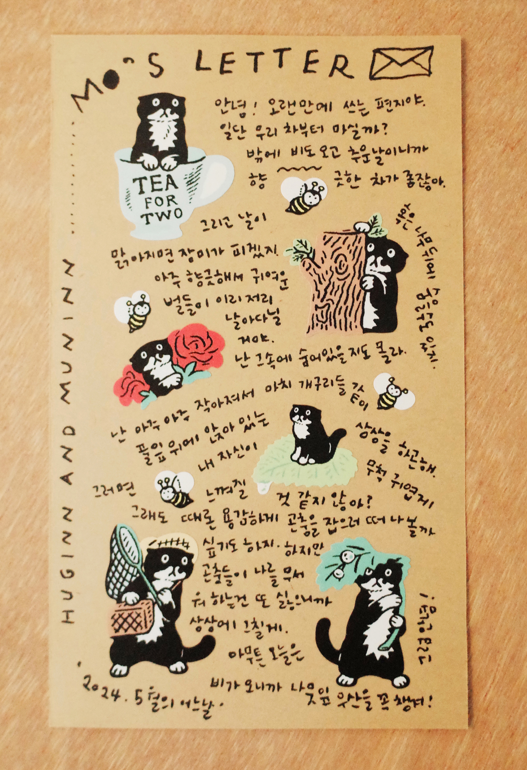 MO'S LETTER
안녕! 오랜만에 쓰는 편지야.
일단 우리 차부터 마실까?
밖에 비도오고 추운날이니까
향 긋한 차가 좋잖아.
TEA
FOR
TWO
그리고 날이
맑아지면 장미가 피겠지.
아주 향긋해서 귀여운
벌들이 이리저리
날아다닐
거야.
난 그속에 숨어있을지도 몰라.
혹은 나무뒤에 숨
을수도 있지.
난 아주 아주 작아져서 마치 개구리들 같이
풀잎위에 앉아 있는
내 자신이
상상을 하곤해
무척 귀엽게
그러면 느껴질
것 같지 않아?
그래도 때론 용감하게 곤충을 잡으러 떠나볼까
싶기도 하지. 하지만
곤충들이 나를 무서
워 하는건 또 싫으니까
상상에 그칠게.
아무튼 오늘은
비가 오니까 나뭇잎 우산을 꼭 챙겨!
2024. 5월의 어느날.
HUGINN AND MUNINN